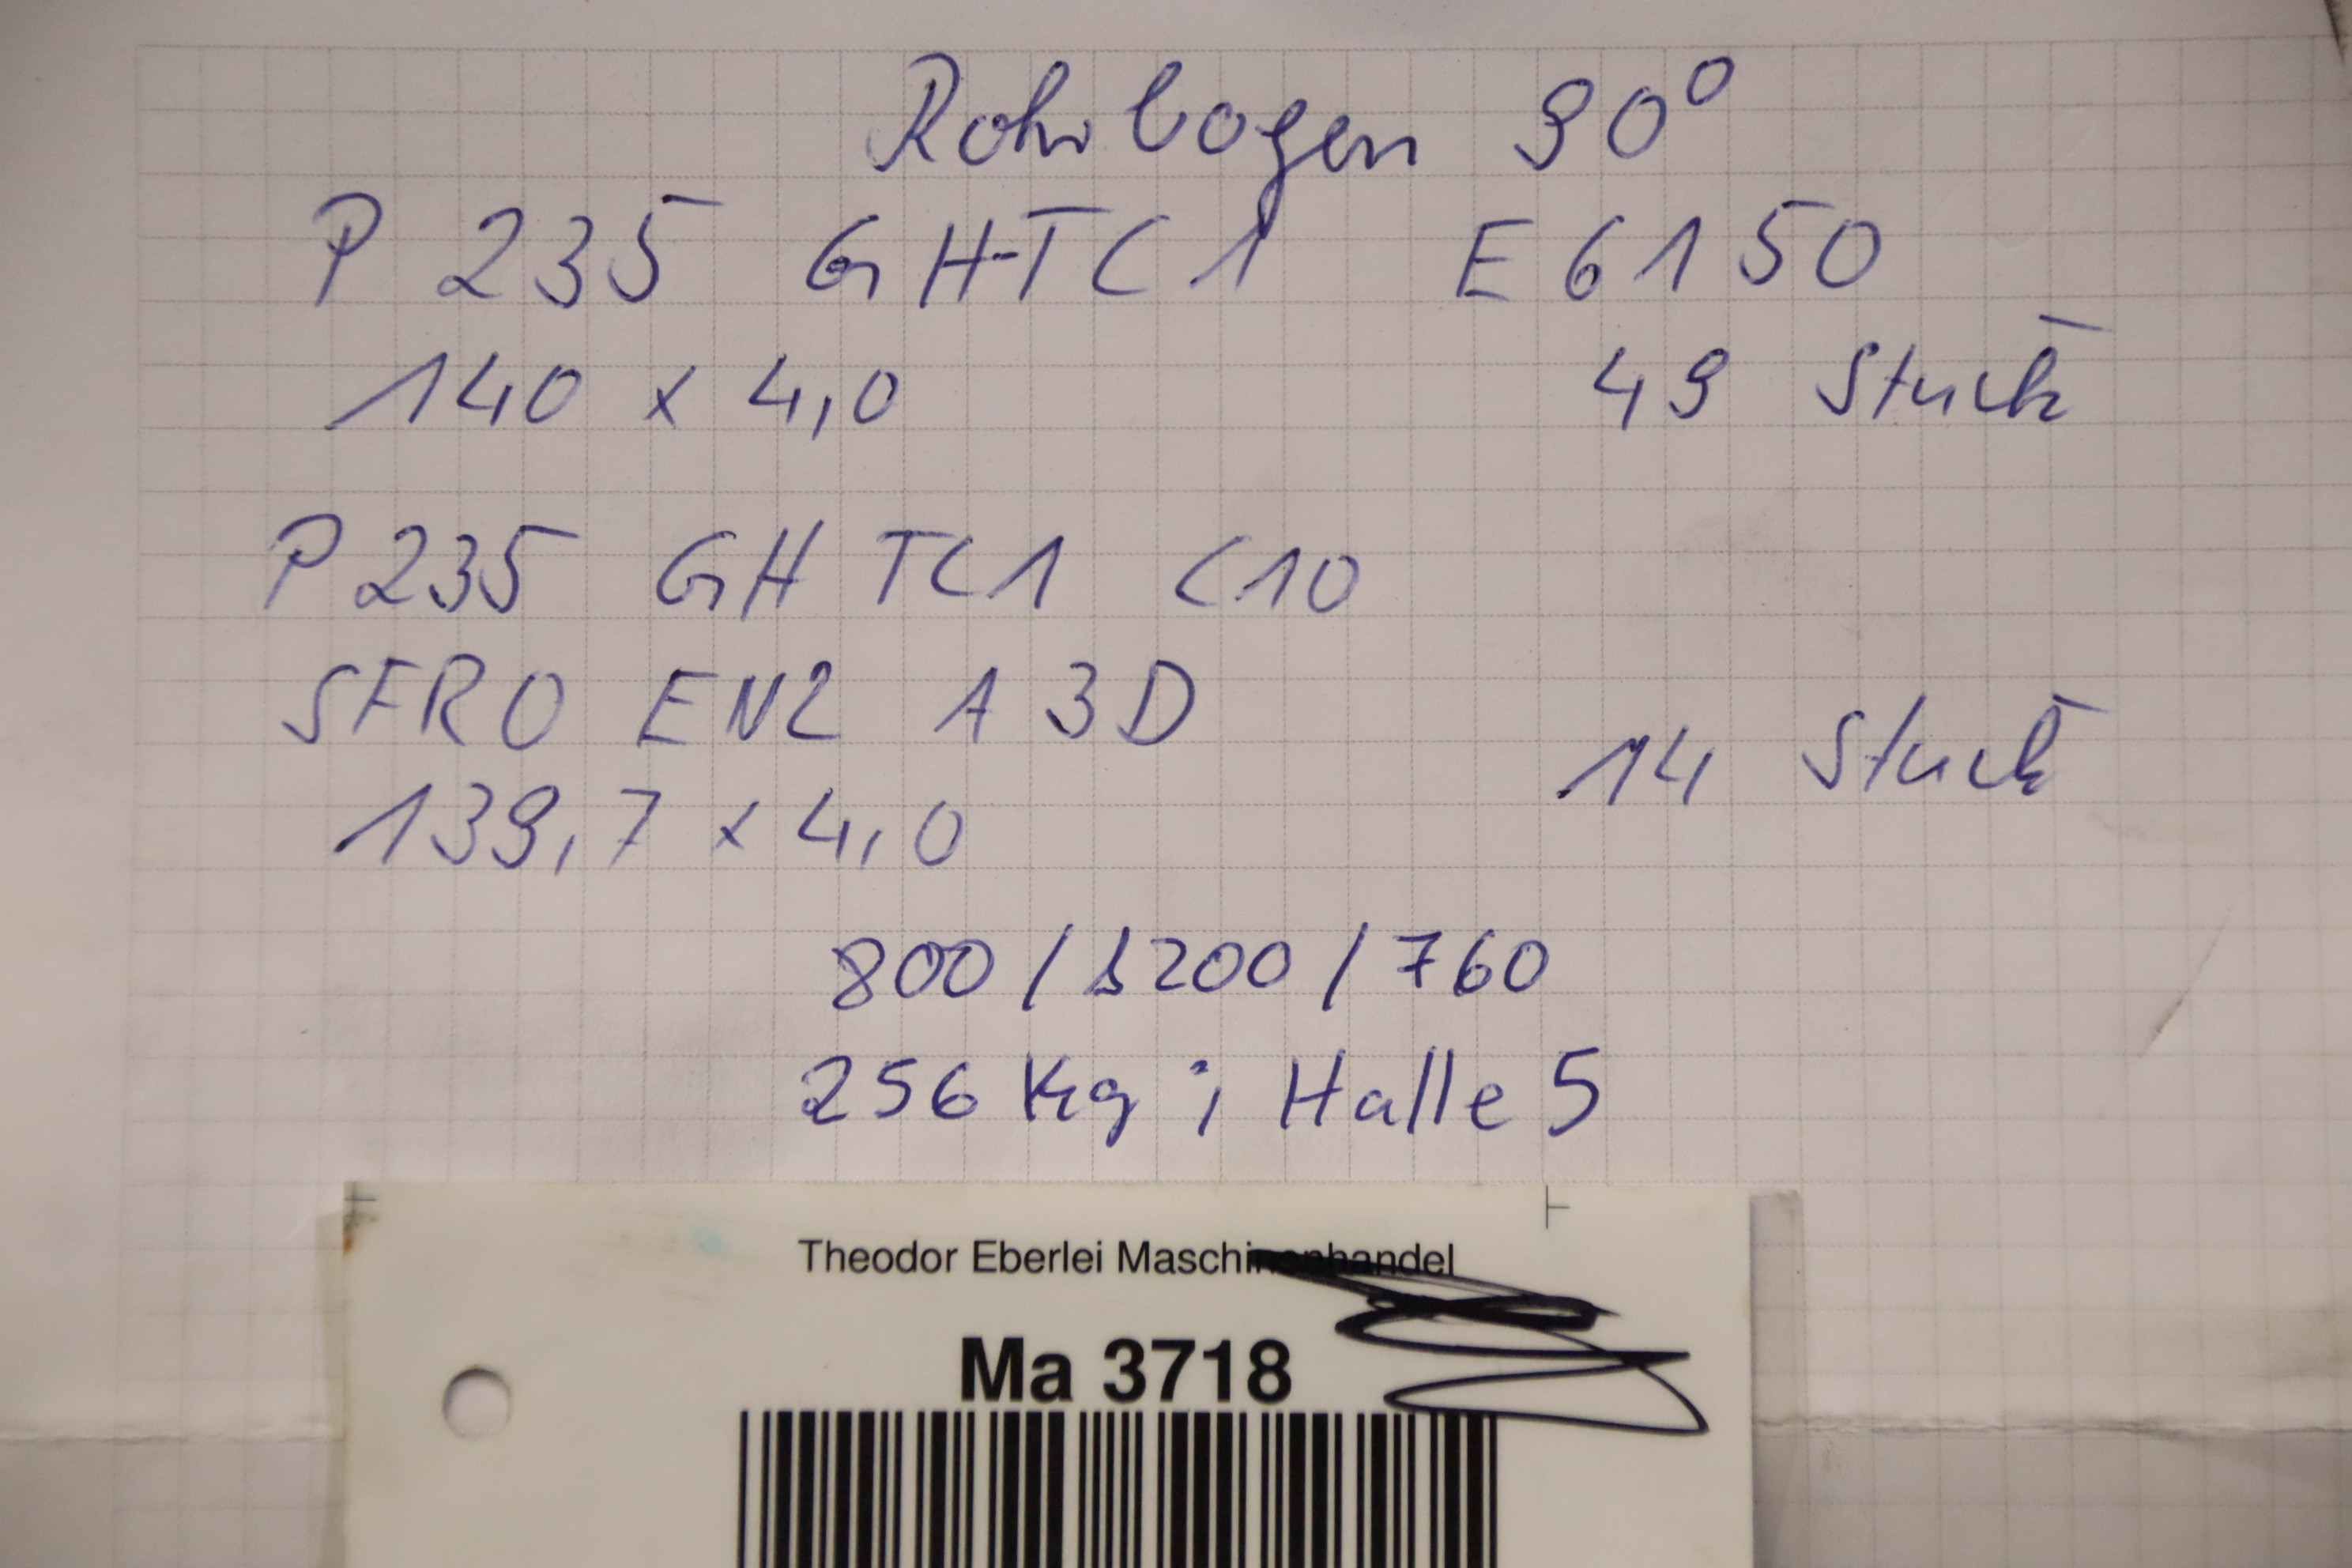 Rohrbogen 90°
P 235 GH-TC1 E 6150
140 x 4,0 49 Stück
P 235 GH TC1 C10
SFRO EN2 A 3D
14 Stück
139,7 x 4,0
800 / 1200 / 760
256 Kg ; Halle 5
Theodor Eberlei Maschinenhandel
Ma 3718